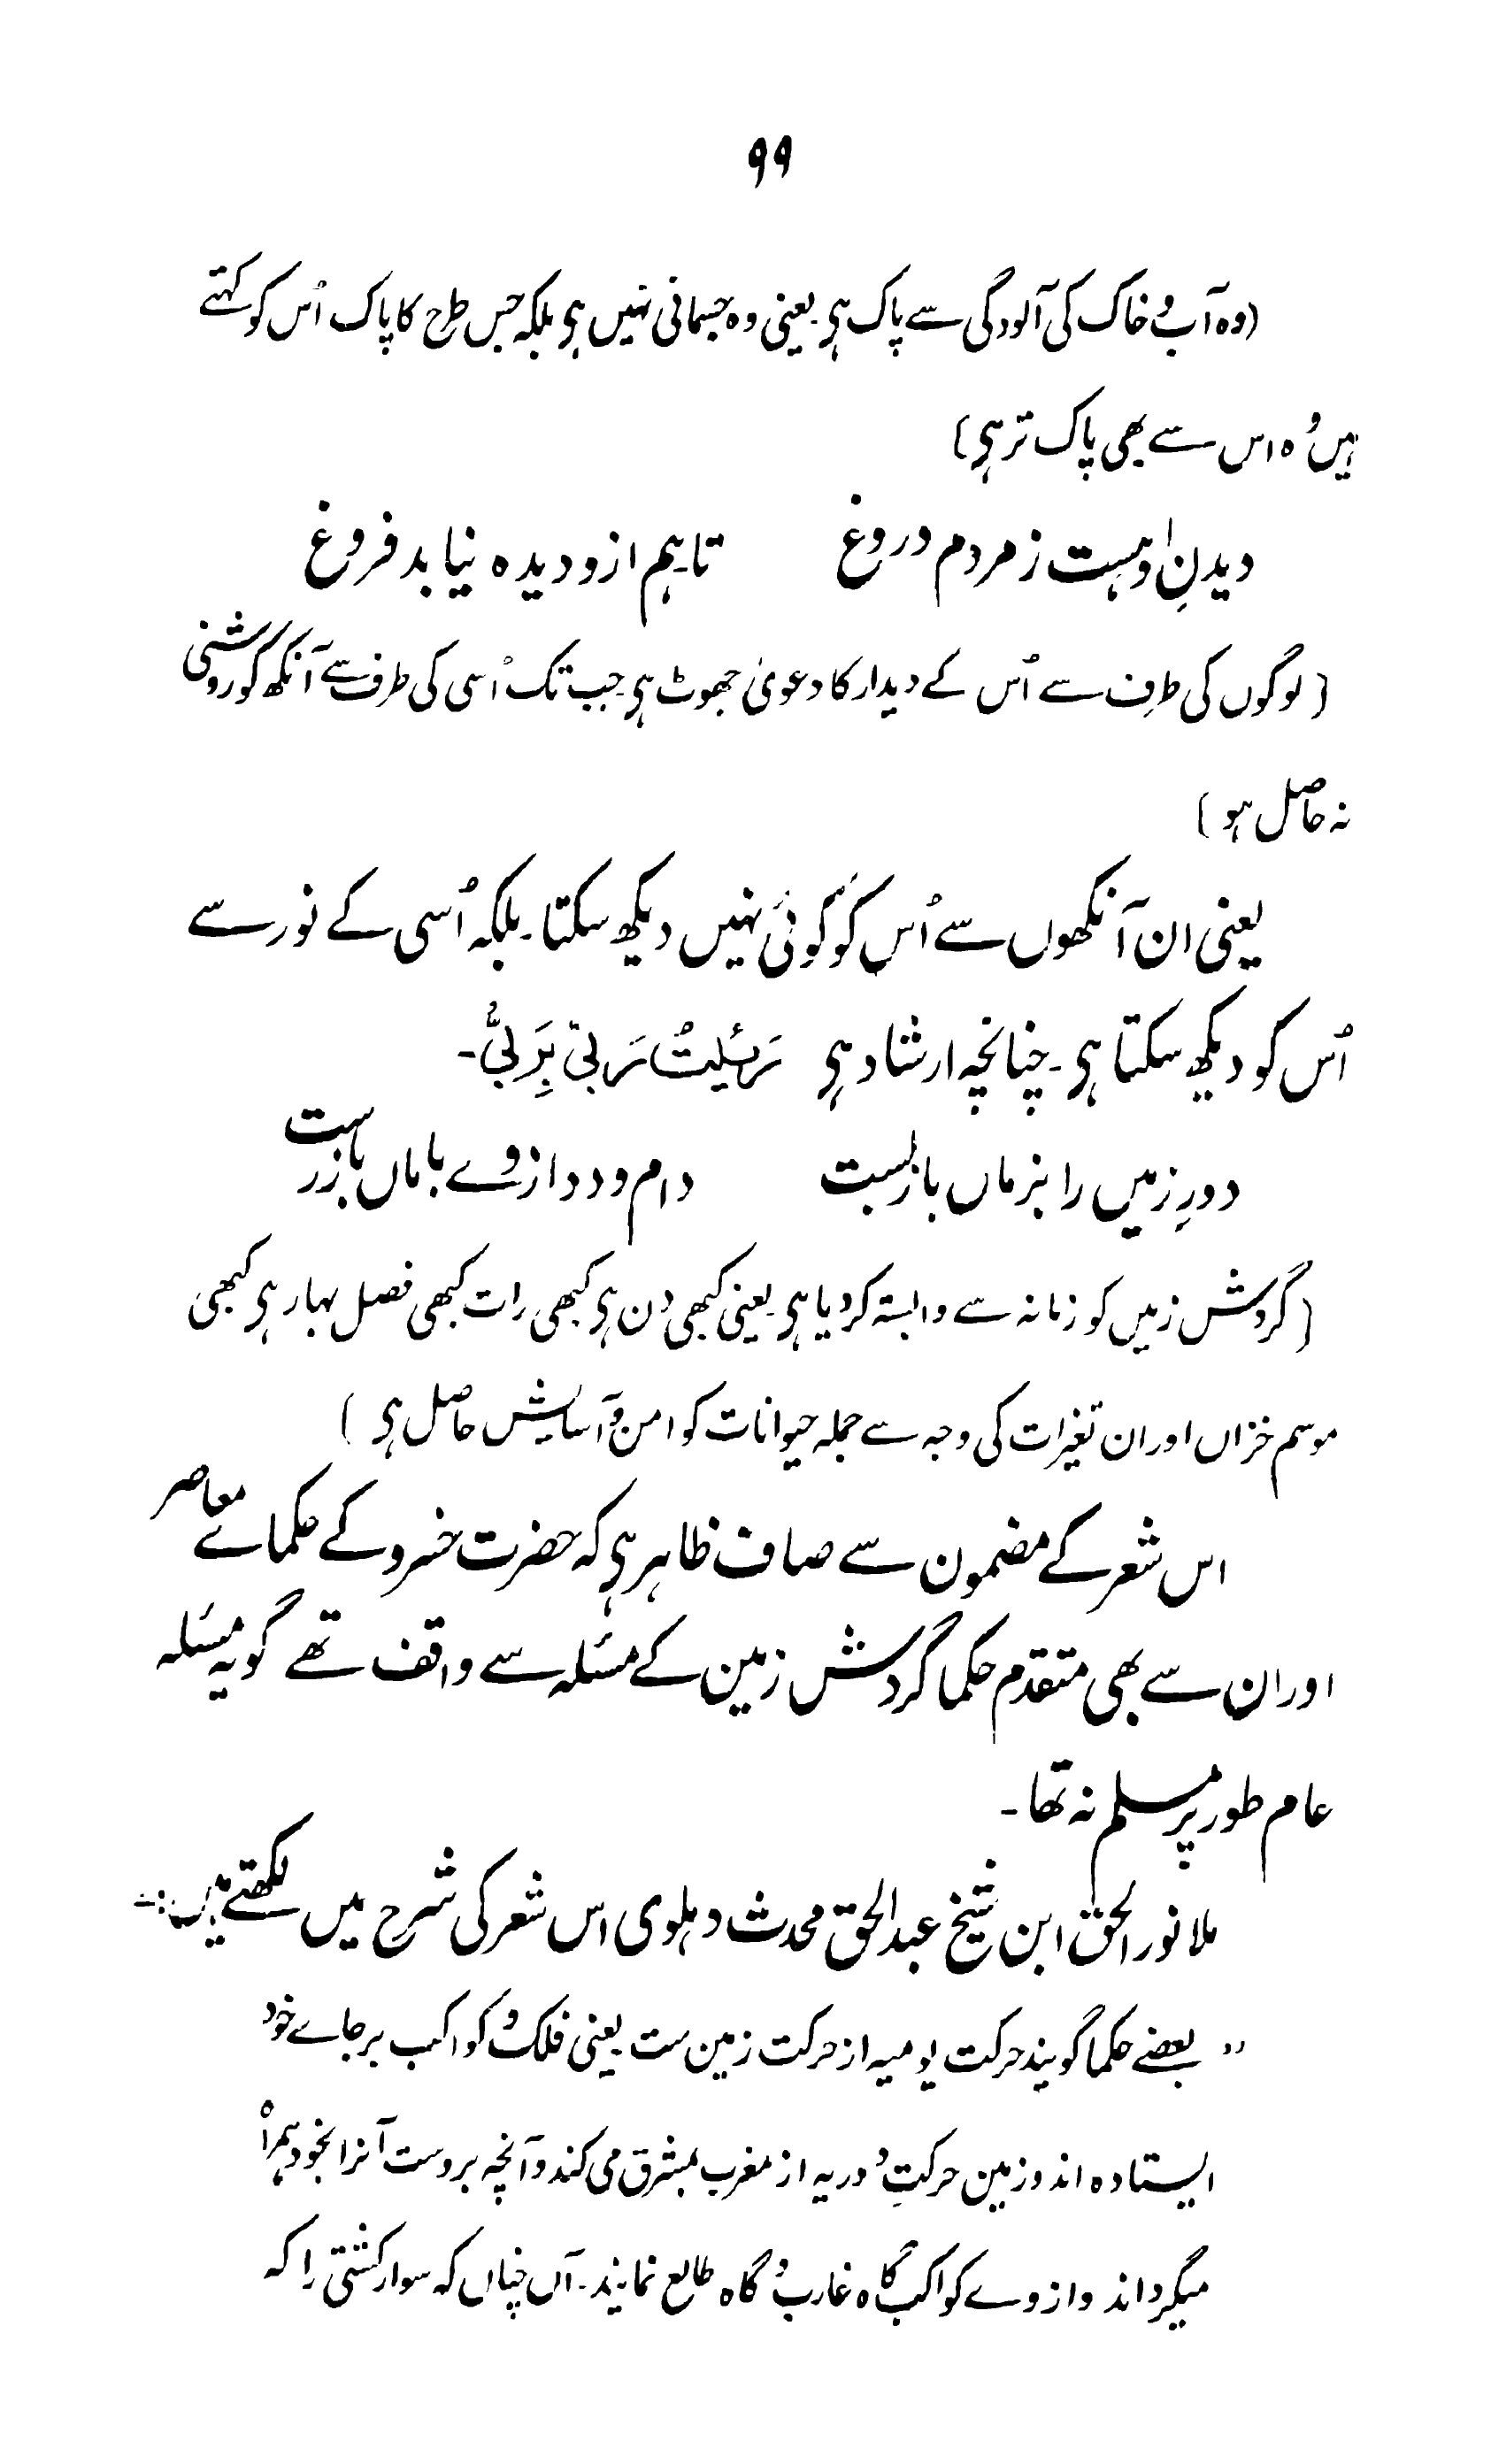 ۹۹
(وہ آب و خاک کی آلودگی سے پاک ہی۔ یعنی وہ جسمانی نہیں ہی بلکہ جس طرح کا پاک اُس کو کہتے
ہیں وُہ اس سے بھی پاک تر ہی)
دیدنِ او ہست ز مردم دروغ تا ہم ازو دیدہ نیابد فروغ
(لوگوں کی طرف سے اُس کے دیدار کا دعویٰ جھوٹ ہی جب تک اُسی کی طرف سے آنکھ کو روشنی
نہ حاصل ہو)
یعنی ان آنکھوں سے اُس کو کوئی نہیں دیکھ سکتا۔ بلکہ اُسی کے نور سے
اُس کو دیکھ سکتا ہی۔ چنانچہ ارشاد ہی رَئیتُ رَبّی بِرَبّی۔
دورِ زمیں را بزماں باز بست دام و دد از وے باماں باز رست
(گردش زمیں کو زمانہ سے وابستہ کر دیا ہی۔ یعنی کبھی دن ہی کبھی رات کبھی فصل بہار ہی کبھی
موسم خزاں اور ان تغیرات کی وجہ سے جملہ حیوانات کو امن و آسایش حاصل ہی)
اس شعر کے مضمون سے صاف ظاہر ہی کہ حضرت خسرو کے حکمائے معاصر
اور ان سے بھی متقدم حکما گردش زمین کے مسئلہ سے واقف تھے گو یہ مسئلہ
عام طور پر مسلم نہ تھا۔
ملا نور الحق ابن شیخ عبد الحق محدث دہلوی اس شعر کی شرح میں لکھتے ہیں:۔
"بعضے حکما گویند حرکت یومیہ از حرکت زمین ست۔ یعنی فلک و کواکب بر جاے خود
ایستادہ اند و زمین حرکتِ دوریہ از مغرب بمشرق می کند و آنچہ بروست آنرا بخود ہمراہ
میگرداند و از وے کواکب گاہ غارب و گاہ طالع نمایند۔ آں چناں کہ سوار کشتی را کہ